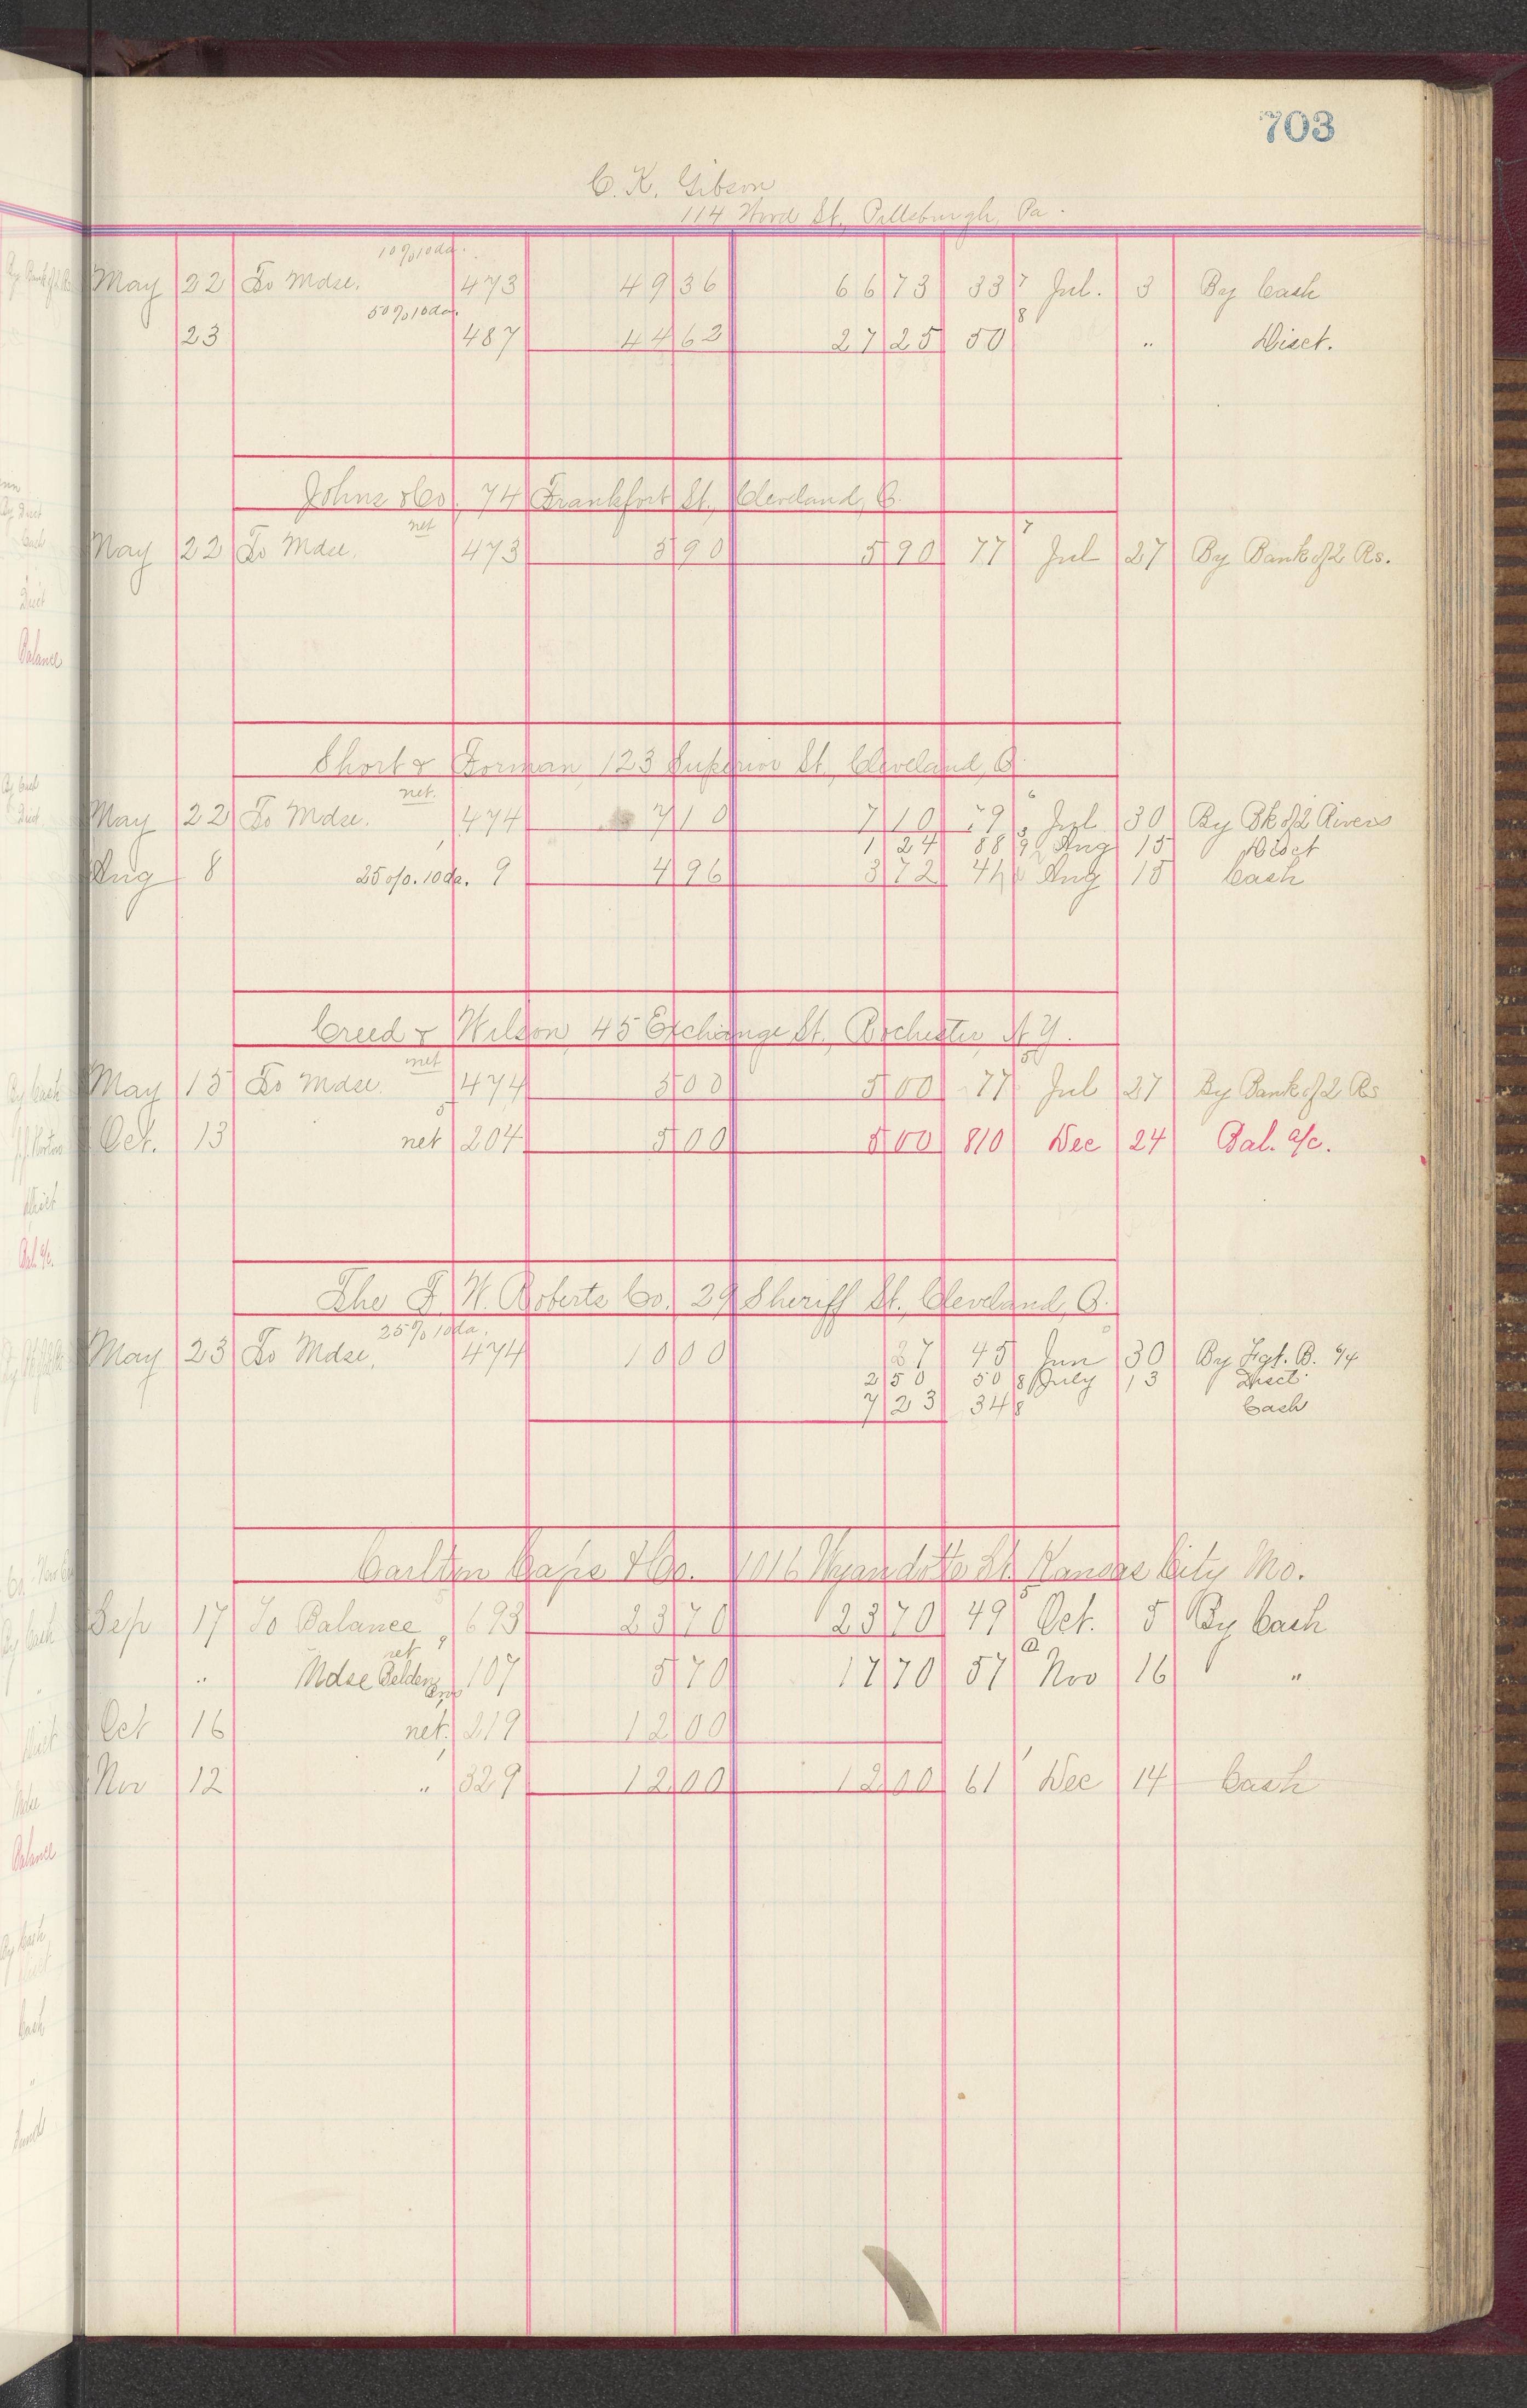 703
C. K. Gibson
114 Wood St., Pittsburgh, Pa.
10% 10 da.
May 22 To Mdse. 473 49 36 66 73 33 7 Jul. 3 By Cash
50% 10 da.
23 487 44 62 27 25 50 8 " Disct.
Johns & Co., 74 Frankfort St., Cleveland, O.
net
May 22 To Mdse. 473 5 90 5 90 77 7 Jul 27 By Bank of 2 Rs.
Short & Forman, 123 Superior St., Cleveland, O.
net.
May 22 To Mdse. 474 7 10 7 10 79 6 Jul 30 By Bk of 2 Rivers
1 24 88 9 Aug 15 Disct
Aug 8 25 o/o. 10 da. 9 4 96 3 72 Aug 15 Cash
Creed & Wilson, 45 Exchange St., Rochester, N.Y.
net
May 15 To Mdse. 474 5 00 5 00 77 Jul 27 By Bank of 2 Rs
Oct. 13 net 204 5 00 5 00 810 Dec 24 Bal. a/c.
The F. W. Roberts Co., 29 Sheriff St., Cleveland, O.
25% 10 da.
May 23 To Mdse. 474 10 00 27 45 Jun 30 By Fgt. B.
2 50 50 8 July 13 Disct.
7 23 34 8 Cash
Carlton Caps & Co. 1016 Wyandotte St. Kansas City Mo.
Sep 17 To Balance 693 23 70 23 70 49 Oct. 5 By Cash
net 9
" Mdse Belden 107 5 70 17 70 57 Nov 16 "
Oct 16 net. 219 12 00
Nov 12 " 329 12 00 12 00 61 Dec 14 Cash